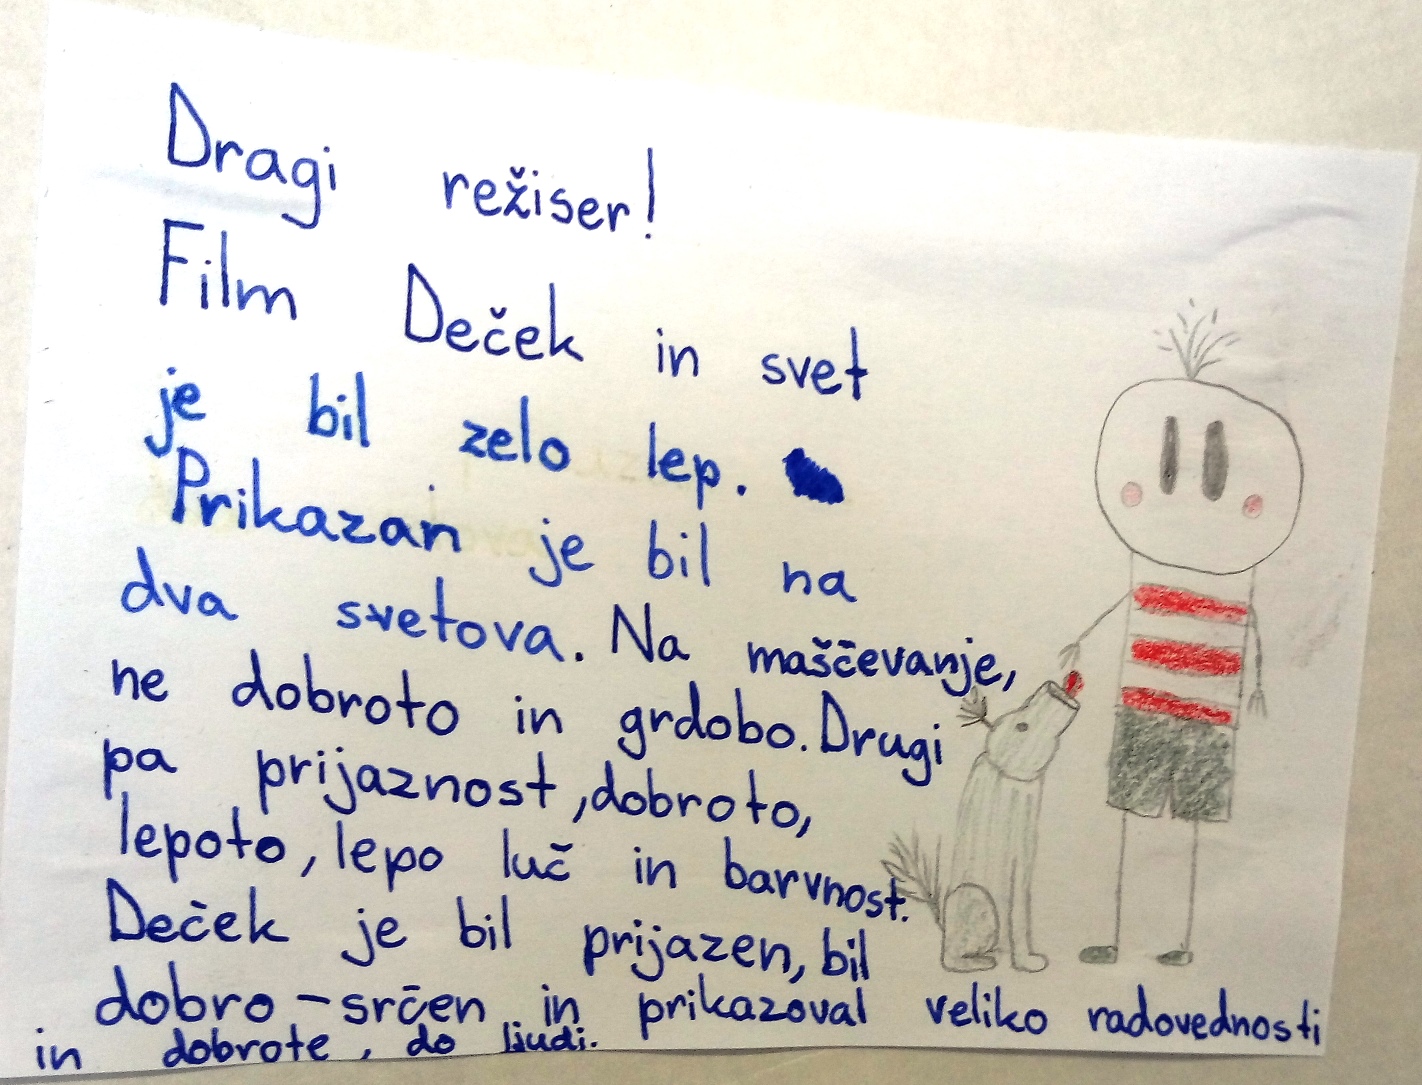 Dragi režiser!
Film Deček in svet
je bil zelo lep.
Prikazan je bil na
dva svetova. Na maščevanje,
ne dobroto in grdobo. Drugi
pa prijaznost, dobroto,
lepoto, lepo luč in barvnost.
Deček je bil prijazen, bil
dobro-srčen in prikazoval veliko radovednosti
in dobrote, do ljudi.